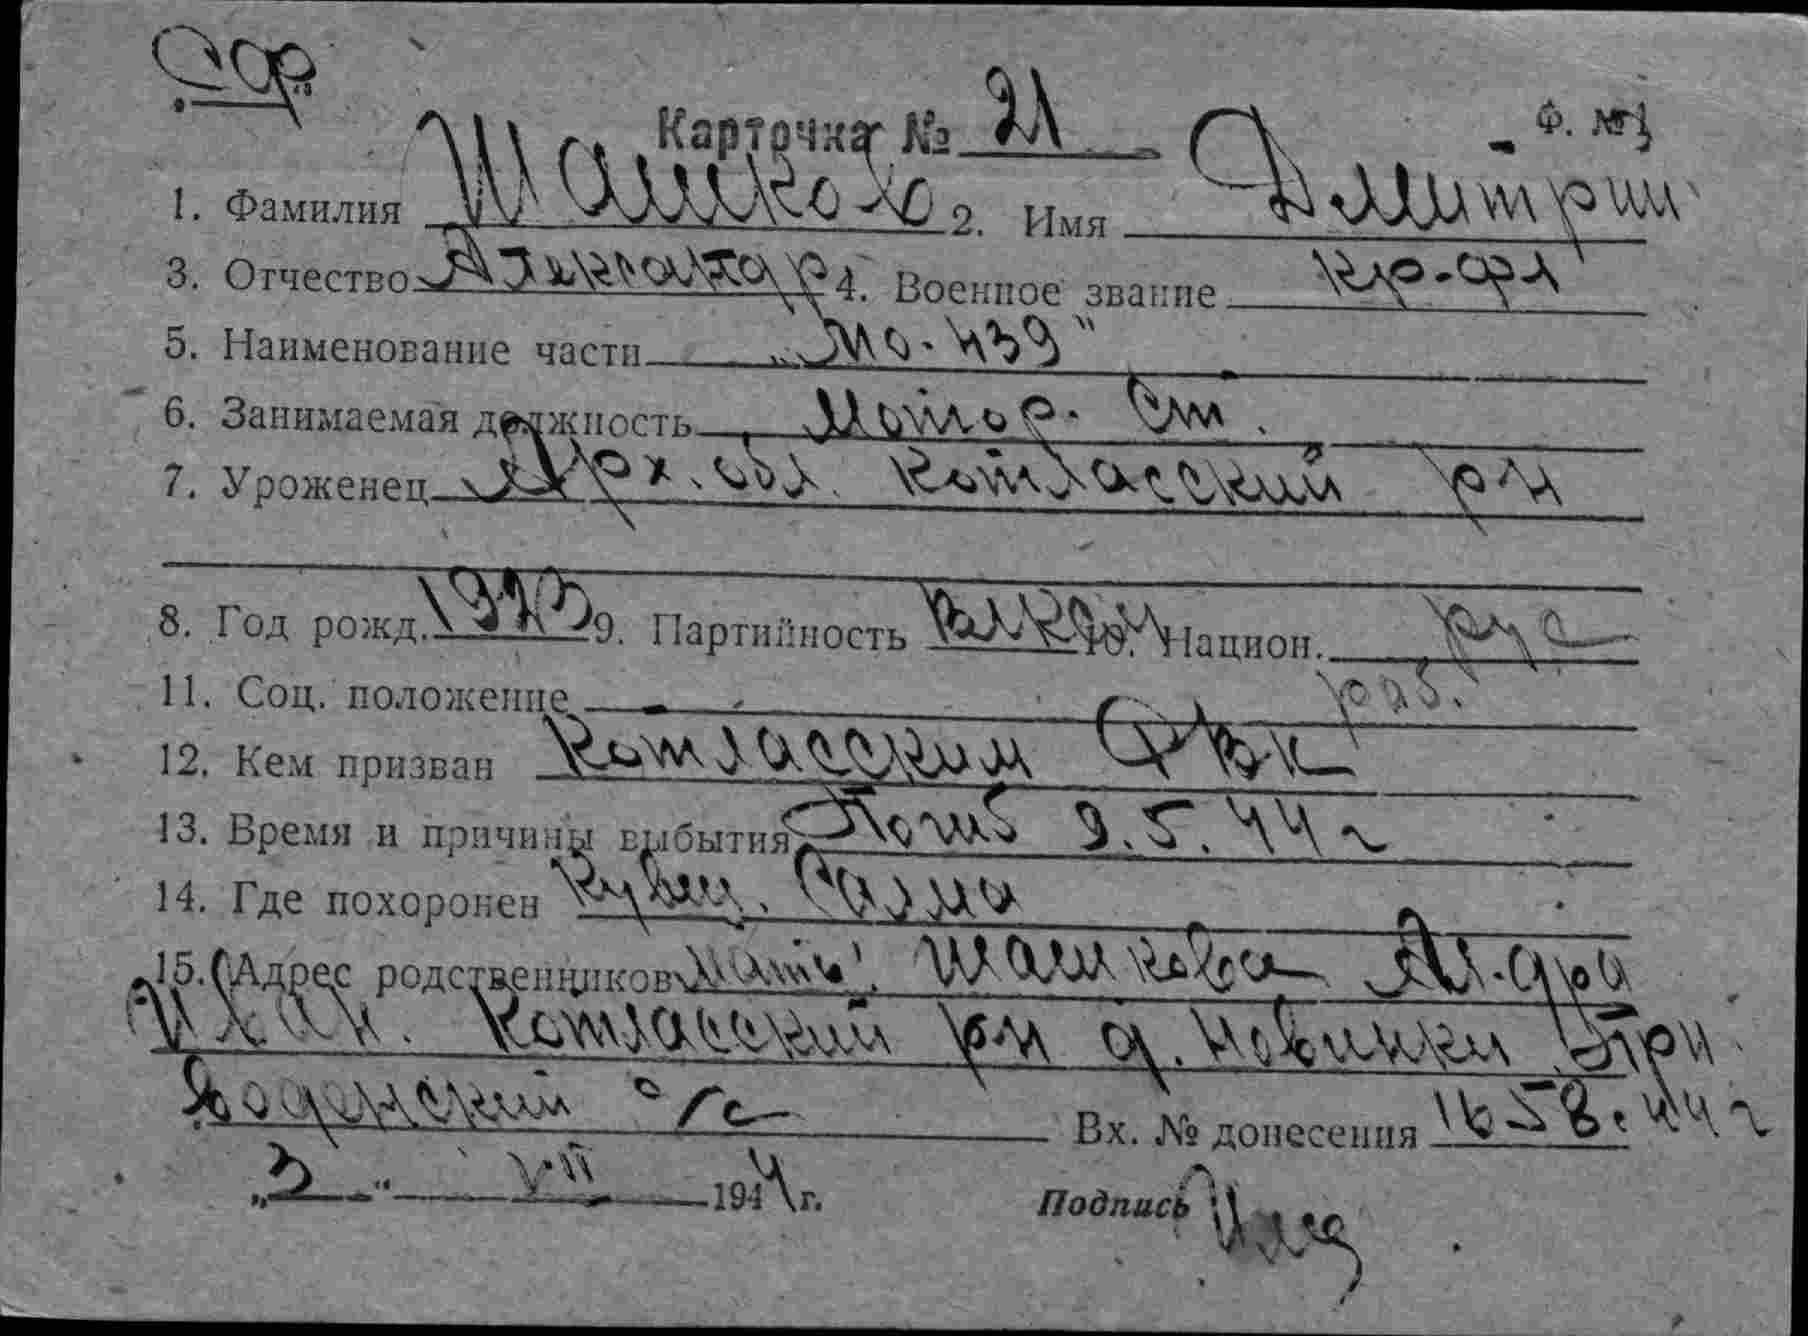 Карточка № 21 Ф. №
1. Фамилия Шашков 2. Имя Дмитрий
3. Отчество Александр 4. Военное звание кр-фл
5. Наименование части „МО-439"
6. Занимаемая должность Мотор. Ст.
7. Уроженец Арх. обл. Котласский р-н
8. Год рожд. 1923 9. Партийность ВЛКСМ 10. Национ. рус
11. Соц. положение раб.
12. Кем призван Котласским РВК
13. Время и причины выбытия Погиб 9.5.44 г
14. Где похоронен Кувш. Салма
15. Адрес родственников мать: Шашкова Ал-дра
Котласский р-н д. Новинки
с/с Вх. № донесения 1658. 44 г
„3" VII 1944 г. Подпись